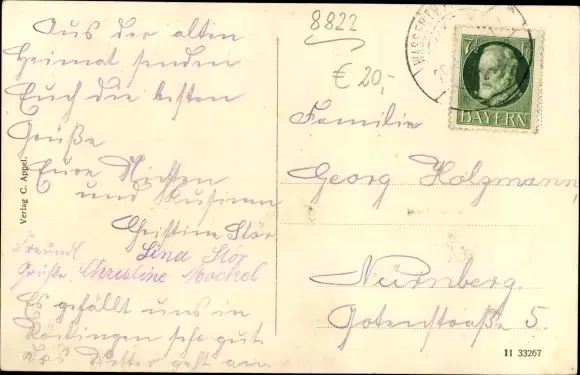 Aus der alten
Heimat senden
Euch die besten
Grüße
Eure Nichten
und Kusinen
Christine Stör
Lina Stör
Freundl.
Grüße Christine Mockel
Es gefällt uns in
sehr gut
Das Wetter geht an.
Verlag C. Appel.
8822
€ 20,-
WASSERT
BAYERN
Familie
Georg Holzmann,
Nürnberg.
Gotenstraße 5.
11 33267